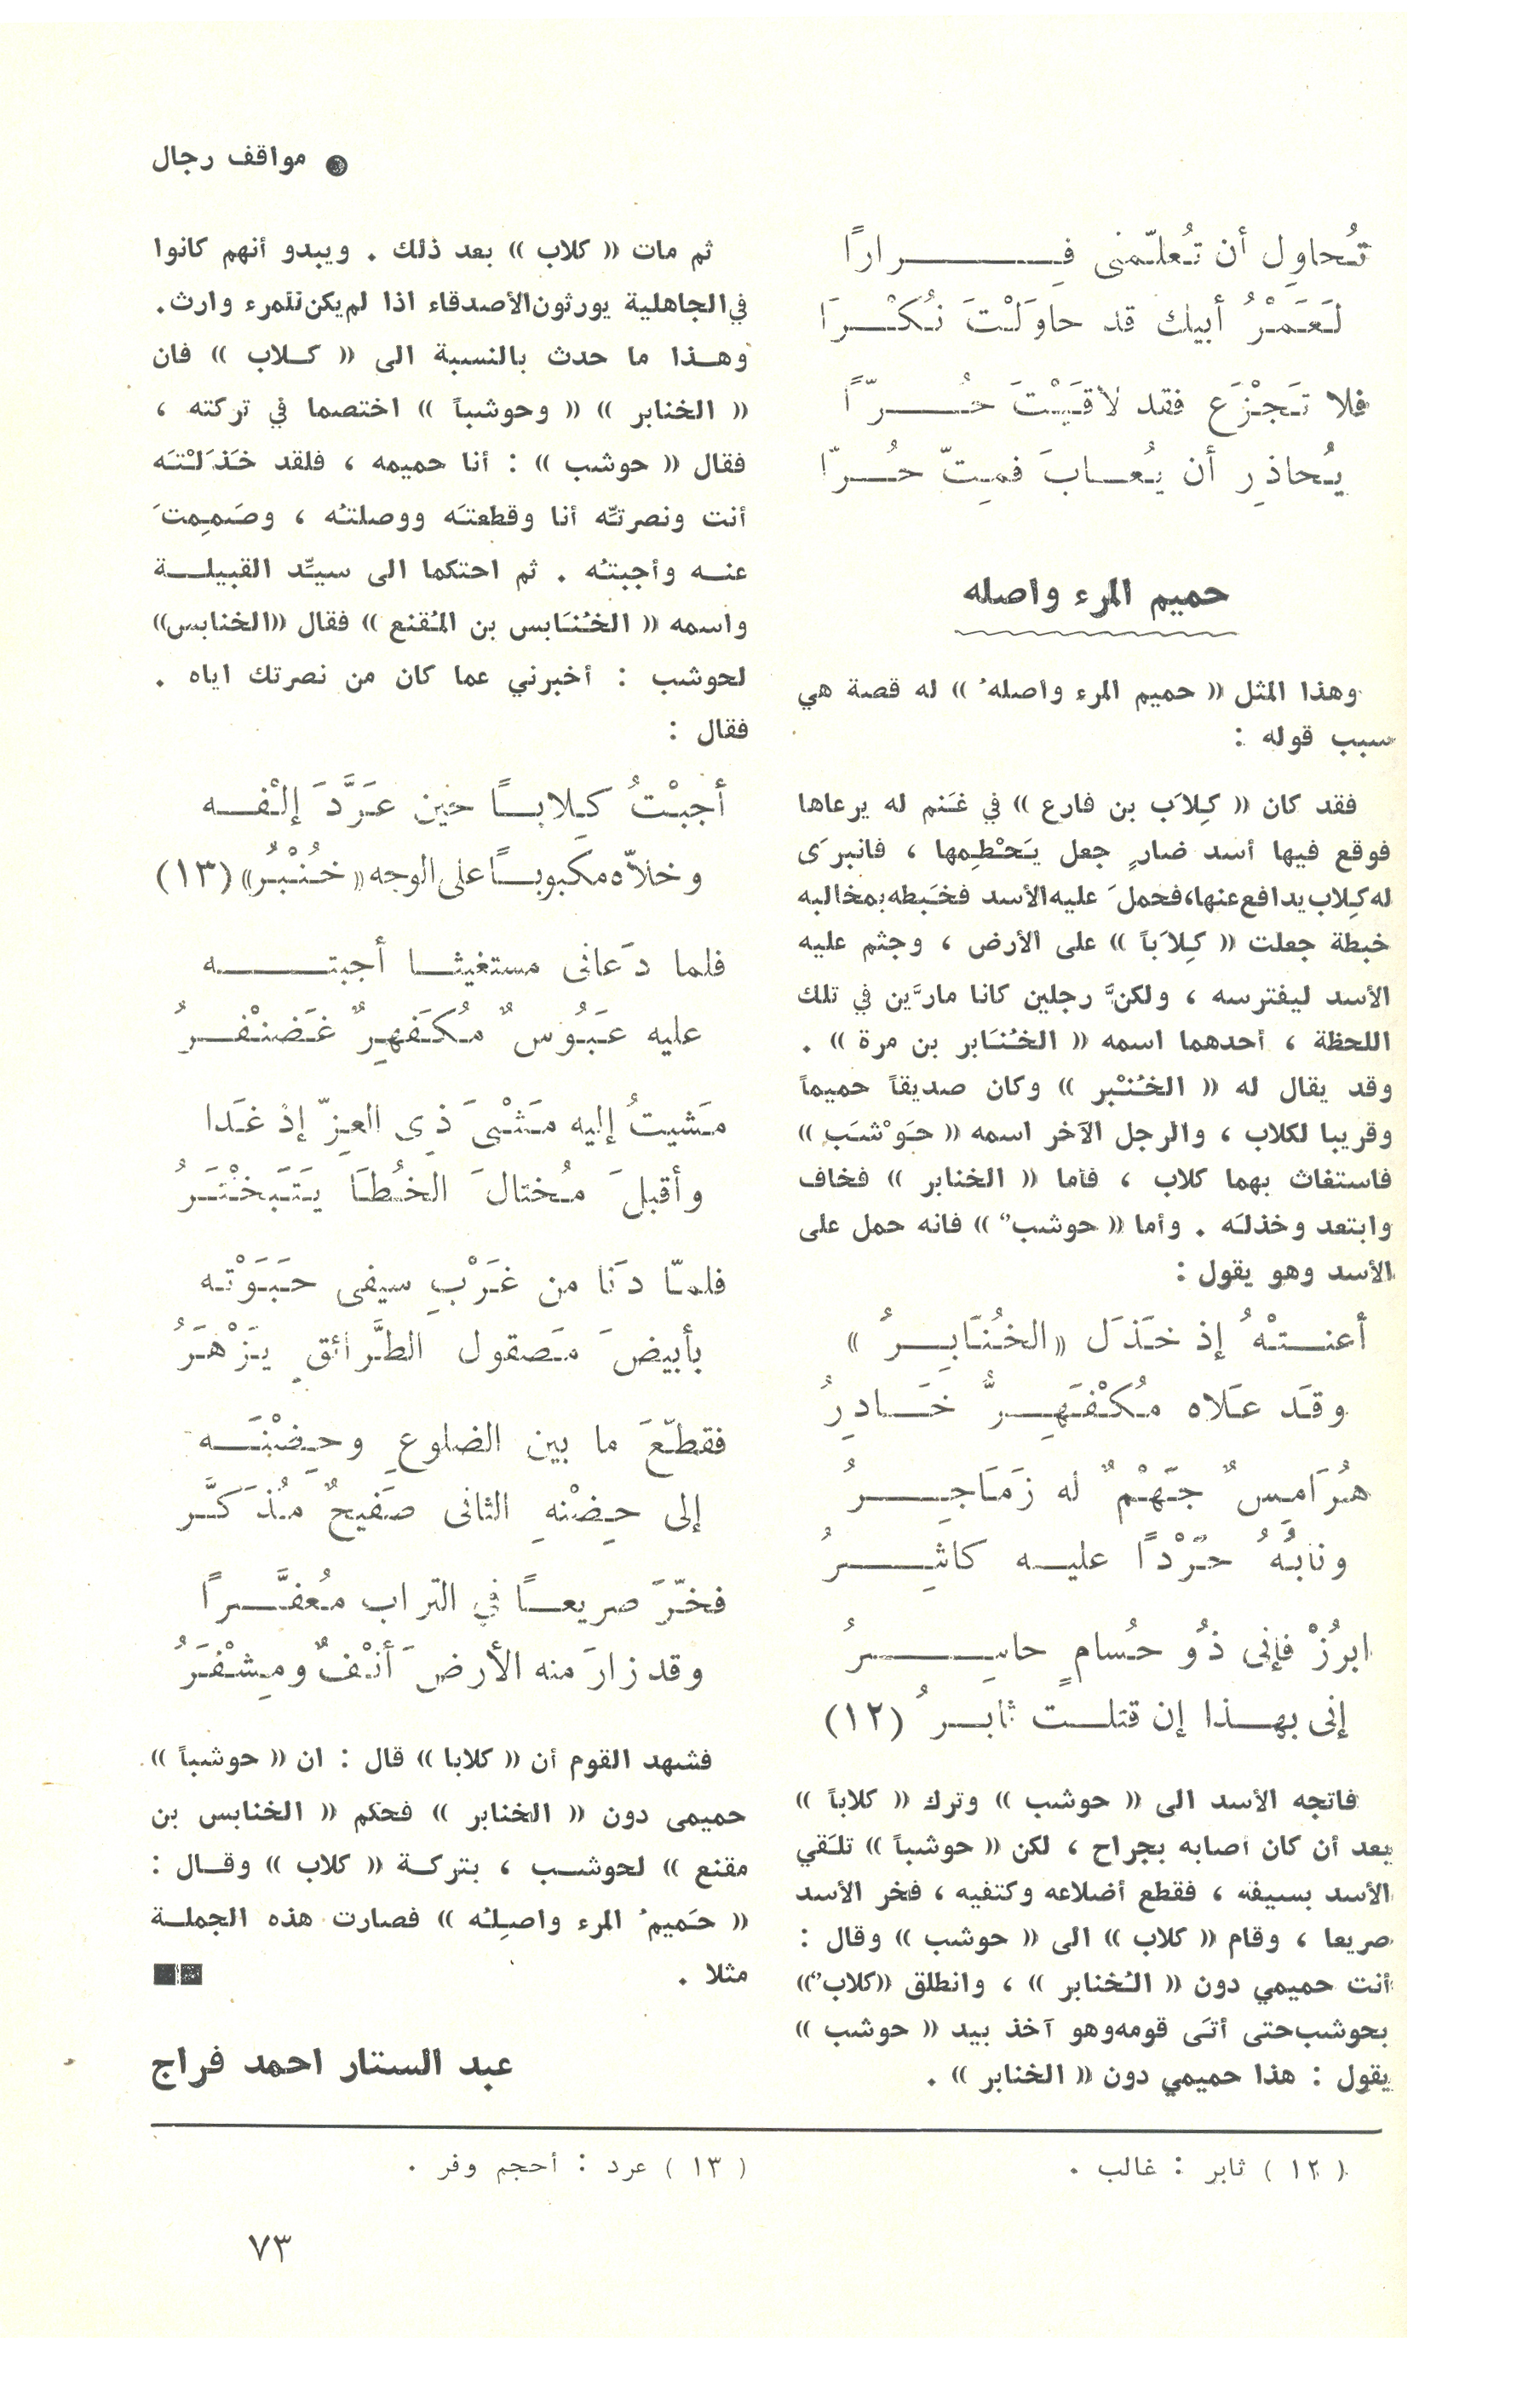 ● مواقف رجال
تُحاوِل أن تُعلّمنى فِــــــــرارًا
لَعَمْرُ أبيك قد حاوَلْتَ نُكْــرَا
فلا تَجْزَع فقد لاقَيْتَ حُـــــرّاً
يُحاذرِ أن يُعــابَ فمِتّ حُــرّا
حميم المرء واصله
وهذا المثل « حميم المرء واصلهُ » له قصة هي
سبب قوله :
فقد كان « كِلاَب بن فارع » في غَنم له يرعاها
فوقع فيها أسد ضارٍ جعل يَحْطِمها ، فانبرَى
له كِلاب يدافع عنها، فحملَ عليه الأسد فخَبطه بمخالبه
خبطة جعلت « كِلاَباً » على الأرض ، وجثم عليه
الأسد ليفترسه ، ولكنَّ رجلين كانا مارَّين في تلك
اللحظة ، أحدهما اسمه « الخُنَابر بن مرة » .
وقد يقال له « الخُنْبر » وكان صديقاً حميماً
وقريبا لكلاب ، والرجل الآخر اسمه « حَوْشَب »
فاستغاث بهما كلاب ، فأما « الخنابر » فخاف
وابتعد وخذلَه . وأما « حوشب » فانه حمل على
الأسد وهو يقول :
أعنـــتْهُ إذ خَذَل «الخُنَابِــرُ »
وقَد عَلاه مُكْفَهِــرُّ خَـــادِرُ
هُرَامِسٌ جَهْمٌ له زمَاجِـــــرُ
ونابُهُ حَرْدًا عليــه كاشِـــــرُ
ابرُزْ فإنى ذُو حُسامٍ حاسِـــــرُ
إنى بهــذا إن قتلــت ثابــرُ (١٢)
فاتجه الأسد الى « حوشب » وترك « كلاباً »
بعد أن كان أصابه بجراح ، لكن « حوشباً » تلَقي
الأسد بسيفه ، فقطع أضلاعه وكتفيه ، فخر الأسد
صريعا ، وقام « كلاب » الى « حوشب » وقال :
أنت حميمي دون « الخنابر » ، وانطلق «كلاب»
بحوشب حتى أتَى قومه وهو آخذ بيد « حوشب »
يقول : هذا حميمي دون « الخنابر » .
ثم مات « كلاب » بعد ذلك . ويبدو أنهم كانوا
في الجاهلية يورثون الأصدقاء اذا لم يكن للمرء وارث.
وهــذا ما حدث بالنسبة الى « كــلاب » فان
« الخنابر » « وحوشباً » اختصما في تركته ،
فقال « حوشب » : أنا حميمه ، فلقد خَذَلْتَه
أنت ونصرتُه أنا وقطعتَه ووصلتُه ، وصَمِمتَ
عنــه وأجبتُه . ثم احتكما الى سيِّد القبيلــة
واسمه « الخُنَابس بن المُقنع » فقال «الخنابس»
لحوشب : أخبرني عما كان من نصرتك اياه .
فقال :
أجبْتُ كِلابــاً حين عَرَّدَ إلْفــه
وخلاّه مكبوبــاً على الوجه «خُنْبُر» (١٣)
فلما دَعانى مستغيثــا أجبتـــــه
عليه عَبُوسٌ مُكَفهِرٌ غَضنْفــرُ
مَشيتُ إليه مَشْىَ ذِى العِزّ إذ غَدا
وأقبلَ مُختالَ الخُطَا يَتَبخْتَرُ
فلمّا دَنا من غَرْبِ سيفى حَبَوْته
بأبيضَ مَصقول الطَّرائقِ يَزْهَرُ
فقطّعَ ما بين الضلوعِ وحِضْنَــه
إلى حِضْنهِ الثانى صَفيحٌ مُذَكَّــر
فخرّ صريعــاً في التراب مُعفَّـــراً
وقد زارَ منه الأرضَ أنْفٌ ومِشْفَرُ
فشهد القوم أن « كلابا » قال : ان « حوشباً »
حميمى دون « الخنابر » فحكم « الخنابس بن
مقنع » لحوشــب ، بتركــة « كلاب » وقــال :
« حَميمُ المرء واصِلُه » فصارت هذه الجملــة
مثلا .
عبد الستار احمد فراج
( ١٢ ) ثابر : غالب .
( ١٣ ) عرد : أحجم وفر .
٧٣